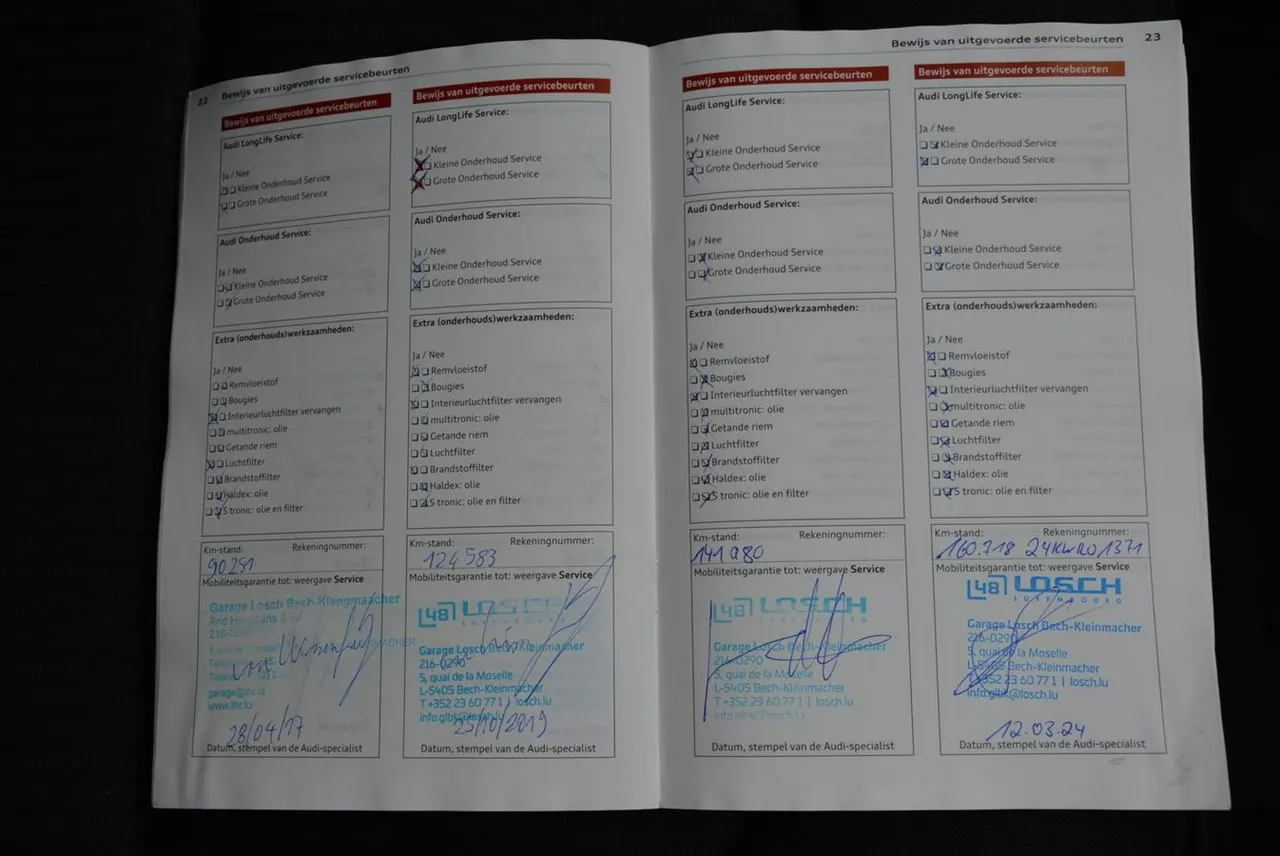 22 Bewijs van uitgevoerde servicebeurten
Bewijs van uitgevoerde servicebeurten
Audi LongLife Service:
Ja / Nee
Kleine Onderhoud Service
Grote Onderhoud Service
Audi Onderhoud Service:
Ja / Nee
Kleine Onderhoud Service
Grote Onderhoud Service
Extra (onderhouds)werkzaamheden:
Ja / Nee
Remvloeistof
Bougies
Interieurluchtfilter vervangen
multitronic: olie
Getande riem
Luchtfilter
Brandstoffilter
Haldex: olie
S tronic: olie en filter
Km-stand: Rekeningnummer:
90291
Mobiliteitsgarantie tot: weergave Service
Garage Losch Bech-Kleinmaacher
216-0290
garage@lhr.lu
www.lhr.lu
28/04/17
Datum, stempel van de Audi-specialist
Bewijs van uitgevoerde servicebeurten
Audi LongLife Service:
Ja / Nee
Kleine Onderhoud Service
Grote Onderhoud Service
Audi Onderhoud Service:
Ja / Nee
Kleine Onderhoud Service
Grote Onderhoud Service
Extra (onderhouds)werkzaamheden:
Ja / Nee
Remvloeistof
Bougies
Interieurluchtfilter vervangen
multitronic: olie
Getande riem
Luchtfilter
Brandstoffilter
Haldex: olie
S tronic: olie en filter
Km-stand: Rekeningnummer:
124583
Mobiliteitsgarantie tot: weergave Service
48 LOSCH
LUXEMBOURG
Garage Losch Bech-Kleinmacher
216-0290
5, quai de la Moselle
L-5405 Bech-Kleinmacher
T +352 23 60 77 1 | losch.lu
info.glbk@losch.lu
25/10/2019
Datum, stempel van de Audi-specialist
Bewijs van uitgevoerde servicebeurten 23
Bewijs van uitgevoerde servicebeurten
Audi LongLife Service:
Ja / Nee
Kleine Onderhoud Service
Grote Onderhoud Service
Audi Onderhoud Service:
Ja / Nee
Kleine Onderhoud Service
Grote Onderhoud Service
Extra (onderhouds)werkzaamheden:
Ja / Nee
Remvloeistof
Bougies
Interieurluchtfilter vervangen
multitronic: olie
Getande riem
Luchtfilter
Brandstoffilter
Haldex: olie
S tronic: olie en filter
Km-stand: Rekeningnummer:
141980
Mobiliteitsgarantie tot: weergave Service
48 LOSCH
LUXEMBOURG
Garage Losch Bech-Kleinmacher
216-0290
5, quai de la Moselle
L-5405 Bech-Kleinmacher
T +352 23 60 77 1 | losch.lu
info.glbk@losch.lu
Datum, stempel van de Audi-specialist
Bewijs van uitgevoerde servicebeurten
Audi LongLife Service:
Ja / Nee
Kleine Onderhoud Service
Grote Onderhoud Service
Audi Onderhoud Service:
Ja / Nee
Kleine Onderhoud Service
Grote Onderhoud Service
Extra (onderhouds)werkzaamheden:
Ja / Nee
Remvloeistof
Bougies
Interieurluchtfilter vervangen
multitronic: olie
Getande riem
Luchtfilter
Brandstoffilter
Haldex: olie
S tronic: olie en filter
Km-stand: Rekeningnummer:
160.718 24KWRO1371
Mobiliteitsgarantie tot: weergave Service
48 LOSCH
LUXEMBOURG
Garage Losch Bech-Kleinmacher
216-0290
5, quai de la Moselle
L-5405 Bech-Kleinmacher
T +352 23 60 77 1 | losch.lu
info.glbk@losch.lu
12.03.24
Datum, stempel van de Audi-specialist